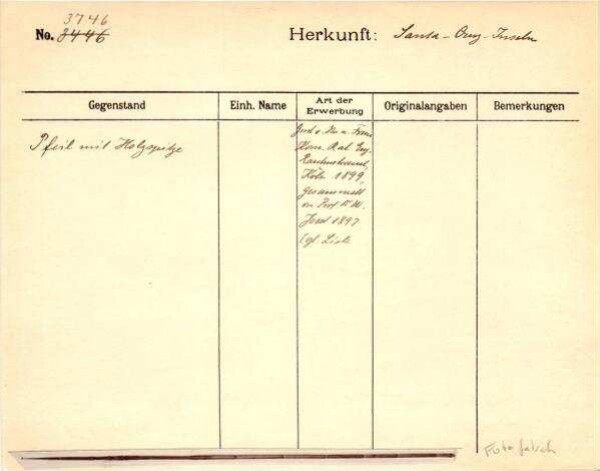 3746
No. 3446 Herkunft: Santa-Cruz-Inseln
Gegenstand Einh. Name Art der Erwerbung Originalangaben Bemerkungen
Pfeil mit Holzspitze
Frau
Kom. Rat Eug.
Rautenstrauch,
Köln 1899,
gesammelt
v. Prof. W.
Joest 1897
Cgl. Liste
Foto falsch